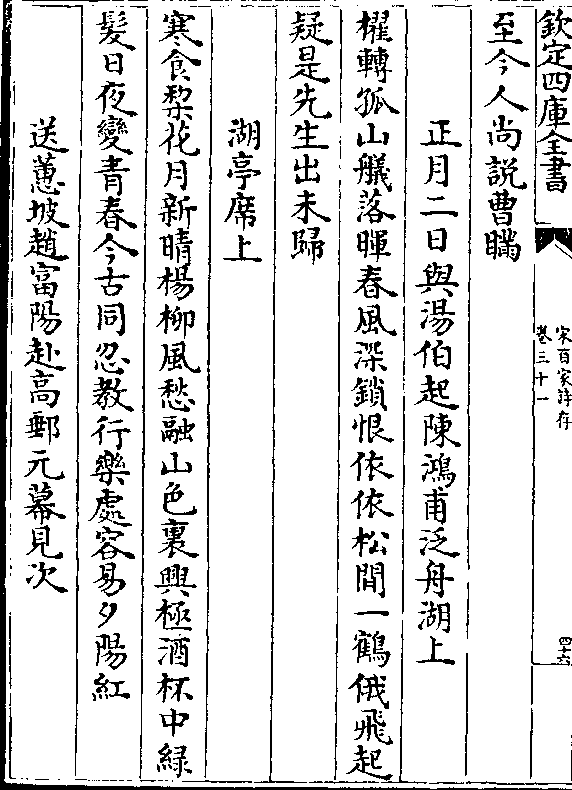 欽定四庫全書
宋百家詩存
卷三十一
四十六
至今人尚説曹瞞
正月二日與湯伯起陳鴻甫泛舟湖上
櫂轉孤山艤落暉春風深鎖恨依依松間一鶴俄飛起
疑是先生出未歸
湖亭席上
寒食梨花月新晴楊柳風愁融山色裏興極酒杯中緑
髮日夜變青春今古同忍教行樂處容易夕陽紅
送蕙坡趙富陽赴高郵元幕見次